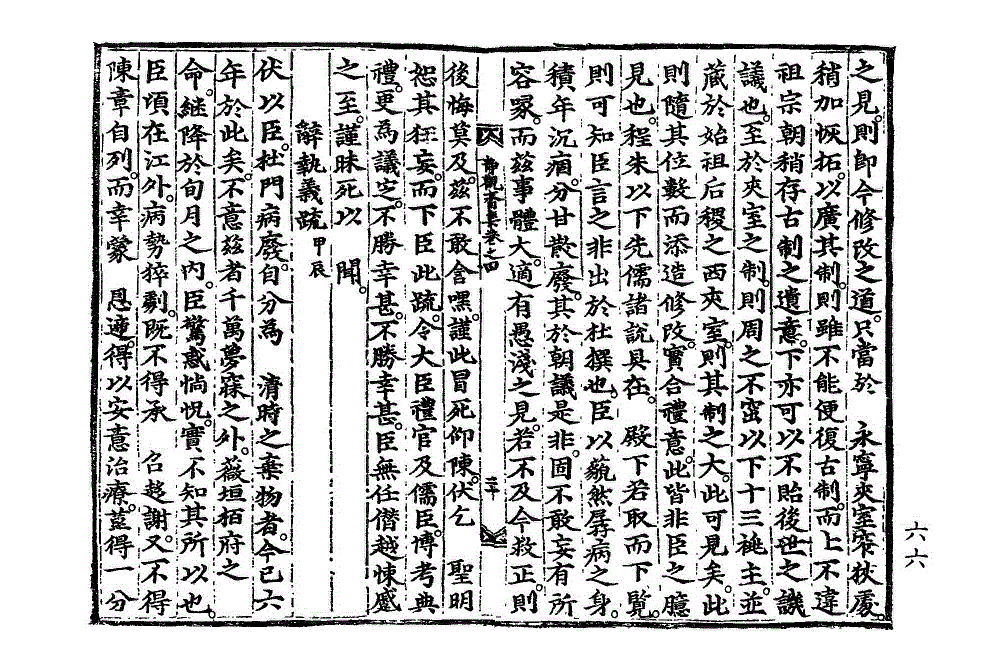 之見。則卽今修改之道。只當於 永寧夾室窄狹處。
稍加恢拓。以廣其制。則雖不能便復古制。而上不違
祖宗朝稍存古制之遺意。下亦可以不貽後世之譏
議也。至於夾室之制。則周之不窋以下十三祧主。並
藏於始祖后稷之西夾室。則其制之大。此可見矣。此
則隨其位數而添造修改。實合禮意。此皆非臣之臆
見也。程朱以下先儒諸說具在。 殿下若取而下覽。
則可知臣言之非出於杜撰也。臣以藐然孱病之身。
積年沉痼。分甘散廢。其於朝議是非。固不敢妄有所
容喙。而茲事體大。適有愚淺之見。若不及今救正。則
靜觀齋集卷之四 三十
後悔莫及。茲不敢含嘿。謹此冒死仰陳。伏乞 聖明
恕其狂妄。而下臣此疏。令大臣禮官及儒臣。博考典
禮。更爲議定。不勝幸甚。不勝幸甚。臣無任僭越悚蹙
之至。謹昧死以 聞。
辭執義疏 甲辰
伏以臣。杜門病廢。自分爲 清時之棄物者。今已六
年於此矣。不意茲者千萬夢寐之外。薇垣栢府之
命。繼降於旬月之內。臣驚惑惝怳。實不知其所以也。
臣頃在江外。病勢猝劇。旣不得承 召趍謝。又不得
陳章自列。而幸蒙 恩遞。得以安意治療。菫得一分
六六